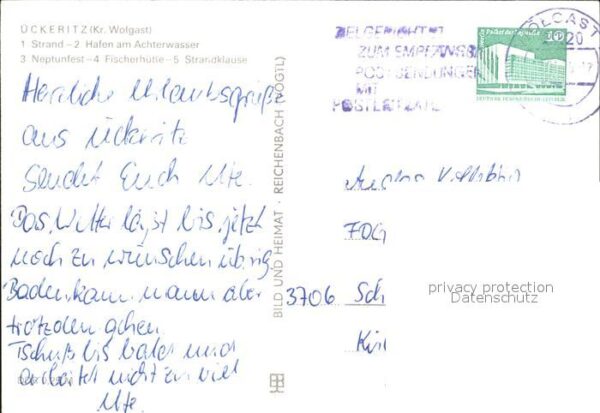 ÜCKERITZ (Kr. Wolgast)
1 Strand – 2 Hafen am Achterwasser
3 Neptunfest – 4 Fischerhütte – 5 Strandklause
Herzliche Urlaubsgrüße
aus Ückeritz
sendet Euch Ute.
Das Wetter läßt bis jetzt
noch zu wünschen übrig.
Baden kann mann aber
trotzdem gehen.
Tschüß bis bald und
arbeitet nicht zu viel
Ute.
BILD UND HEIMAT · REICHENBACH (VOGTL)
ZUM EMPFANG
POSTSENDUNGEN
MIT
POSTLEITZAHL
WOLGAST
2220
10
DEUTSCHE DEMOKRATISCHE REPUBLIK
FDG
3706 Sch
privacy protection
Datenschutz